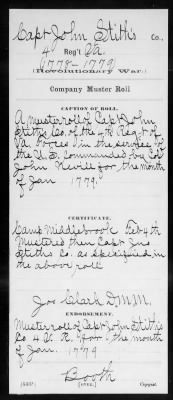 Capt John Stith's Co.,
4 Reg't Va.
(1778-1779)
(Revolutionary War.)
Company Muster Roll
CAPTION OF ROLL.
A muster roll of Capt John
Stiths Co. of the 4th Regt of
Va Forces in the service of
the U.S. Commanded by Col
John Nevill for the month
of Jan 1779.
CERTIFICATE.
Camp Middlebrook Feb 4th
Mustered then Capt Jno
Stiths Co. as specified in
the above roll
Jos Clark D.M.M.
ENDORSEMENT.
Muster roll of Capt John Stiths
Co 4 V. R. for the month
of Jan. 1779
Booth
[OVER.] Copyist.